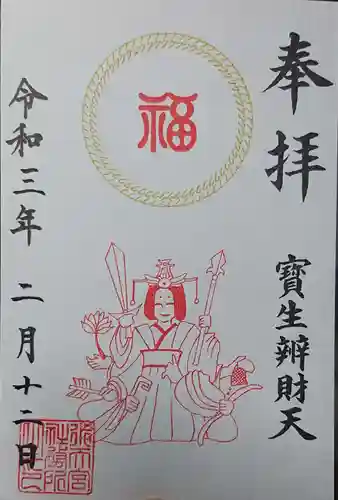 奉拝
寶生辨財天
福
令和三年 二月十二日